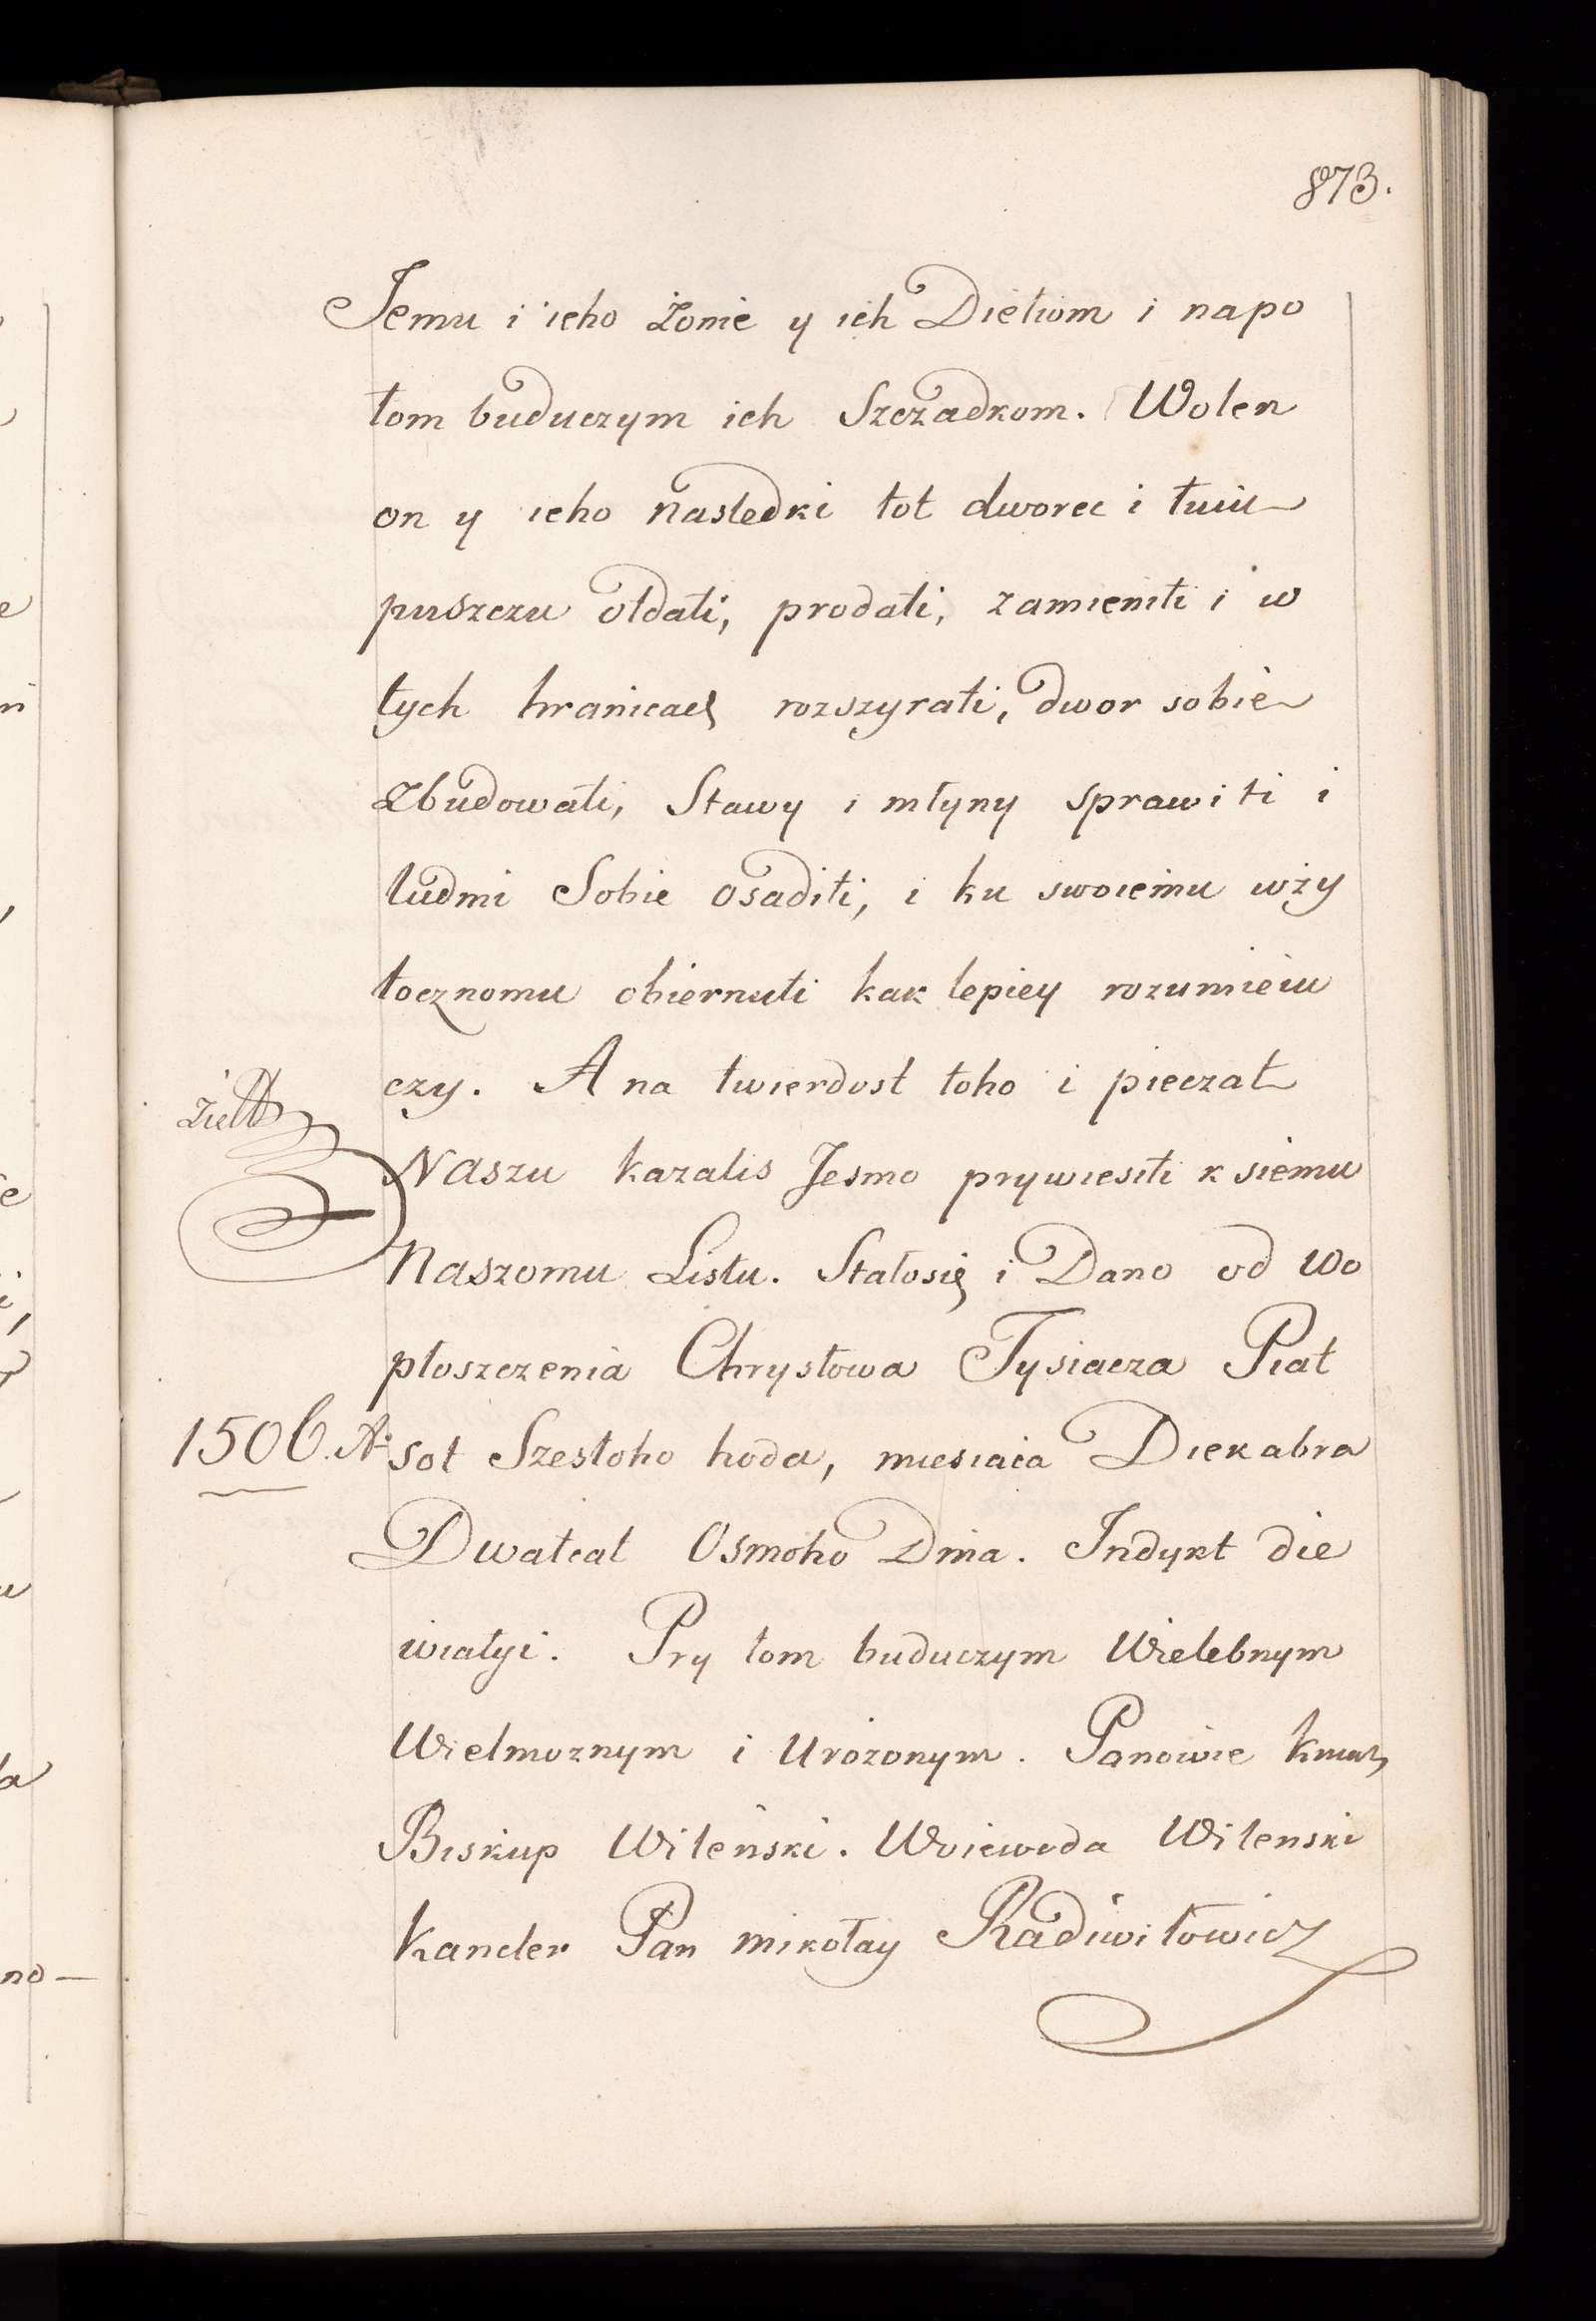 873.
Jemu i ieho żonie y ich Dietiom i napo
tom buduczym ich Szczadkom. Wolen
on y ieho nasledki tot dworec i tuiu
puszczu otdati, prodati, zamieniti i w
tych hranicach rozszyrati, dwor sobie
zbudowati, Stawy i młyny sprawiti i
ludmi Sobie osaditi, i ku swoiemu wży
tocznomu obiernuti kak lepiey rozumieiu
czy. A na twierdost toho i pieczat
Naszu kazalis Jesmo prywiesiti k siemu
Naszomu Listu. Stałosię i Dano od Wo
płoszczenia Chrystowa Tysiacza Piat
1506. A:
sot Szestoho hoda, miesiaca Diekabra
Dwatcat Osmoho Dnia. Indykt die
wiatyi. Pry tom buduczym Wielebnym
Wielmoznym i Urożonym. Panowie
Biskup Wileński. Woiewoda Wilenski
Kancler Pan mikołay Radiwiłowicz